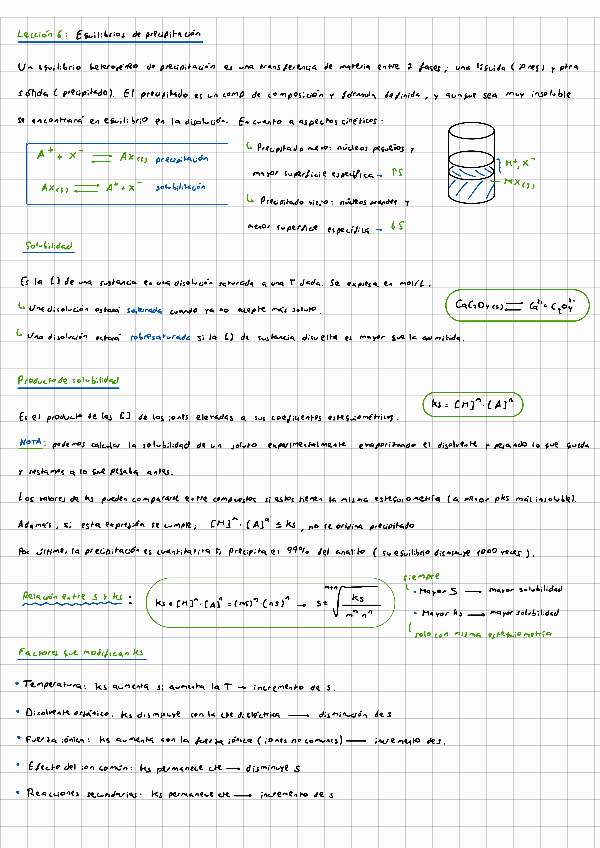 Lección 6: Equilibrios de precipitación
Un equilibrio heterogéneo de precipitación es una transferencia de materia entre 2 fases; una líquida (       ) y otra
sólida (precipitado). El precipitado es un comp de composición y fórmula definida, y aunque sea muy insoluble
se encontrará en equilibrio en la disolución. En cuanto a aspectos cinéticos:
A⁺ + X⁻ ⇌ AX(s) precipitación
AX(s) ⇌ A⁺ + X⁻ solubilización
↳ Precipitado nuevo: núcleos pequeños y
mayor superficie específica → ↑S
↳ Precipitado viejo: núcleos grandes y
menor superficie específica → ↓S
M⁺, X⁻
MX(s)
Solubilidad
Es la [] de una sustancia en una disolución saturada a una T dada. Se expresa en mol/L.
↳ Una disolución estará saturada cuando ya no acepte más soluto.
↳ Una disolución estará sobresaturada si la [] de sustancia disuelta es mayor que la admitida.
CaC₂O₄(s) ⇌ Ca²⁺ + C₂O₄²⁻
Producto de solubilidad
Es el producto de las [] de los iones elevadas a sus coeficientes estequiométricos.
ks = [M]ᵐ · [A]ⁿ
NOTA: podemos calcular la solubilidad de un soluto experimentalmente evaporizando el disolvente y pesando lo que queda
y restamos a lo que pesaba antes.
Los valores de ks pueden compararse entre compuestos si estos tienen la misma estequiometría (a mayor pks más insoluble).
Además, si esta expresión se cumple, [M]ᵐ · [A]ⁿ ≤ ks, no se origina precipitado
Por último, la precipitación es cuantitativa si precipita el 99% del analito (su equilibrio disminuye 1000 veces).
Relación entre S y ks:
ks = [M]ᵐ · [A]ⁿ = (ms)ᵐ · (ns)ⁿ → S = ᵐ⁺ⁿ√(ks / mᵐ nⁿ)
siempre
• Mayor S → mayor solubilidad
• Mayor ks → mayor solubilidad
solo con misma estequiometría
Factores que modifican ks
• Temperatura: ks aumenta si aumenta la T → incremento de S.
• Disolvente orgánico: ks disminuye con la cte dieléctrica → disminución de S
• Fuerza iónica: ks aumenta con la fuerza iónica (iones no comunes) → incremento de s.
• Efecto del ion común: ks permanece cte → disminuye S
• Reacciones secundarias: ks permanece cte → incremento de s